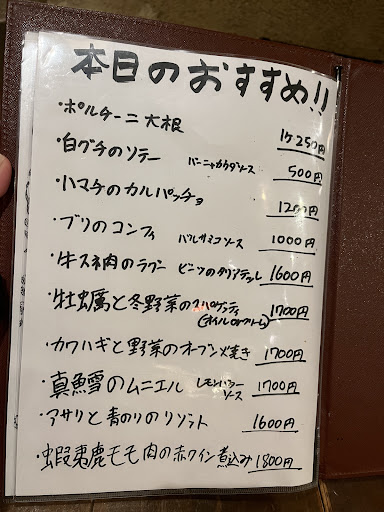 本日のおすすめ!!
・ポルチーニ大根 1ケ250円
・白グチのソテー バーニャカウダソース 500円
・ハマチのカルパッチョ 1200円
・ブリのコンフィ バルサミコソース 1000円
・牛スネ肉のラグー ビーツのタリアテッレ 1600円
・牡蠣と冬野菜のスパゲッティ 1700円
(オイルorクリーム)
・カワハギと野菜のオーブン焼き 1700円
・真鱈のムニエル レモンバターソース 1700円
・アサリと青のりのリゾット 1600円
・蝦夷鹿モモ肉の赤ワイン煮込み 1800円